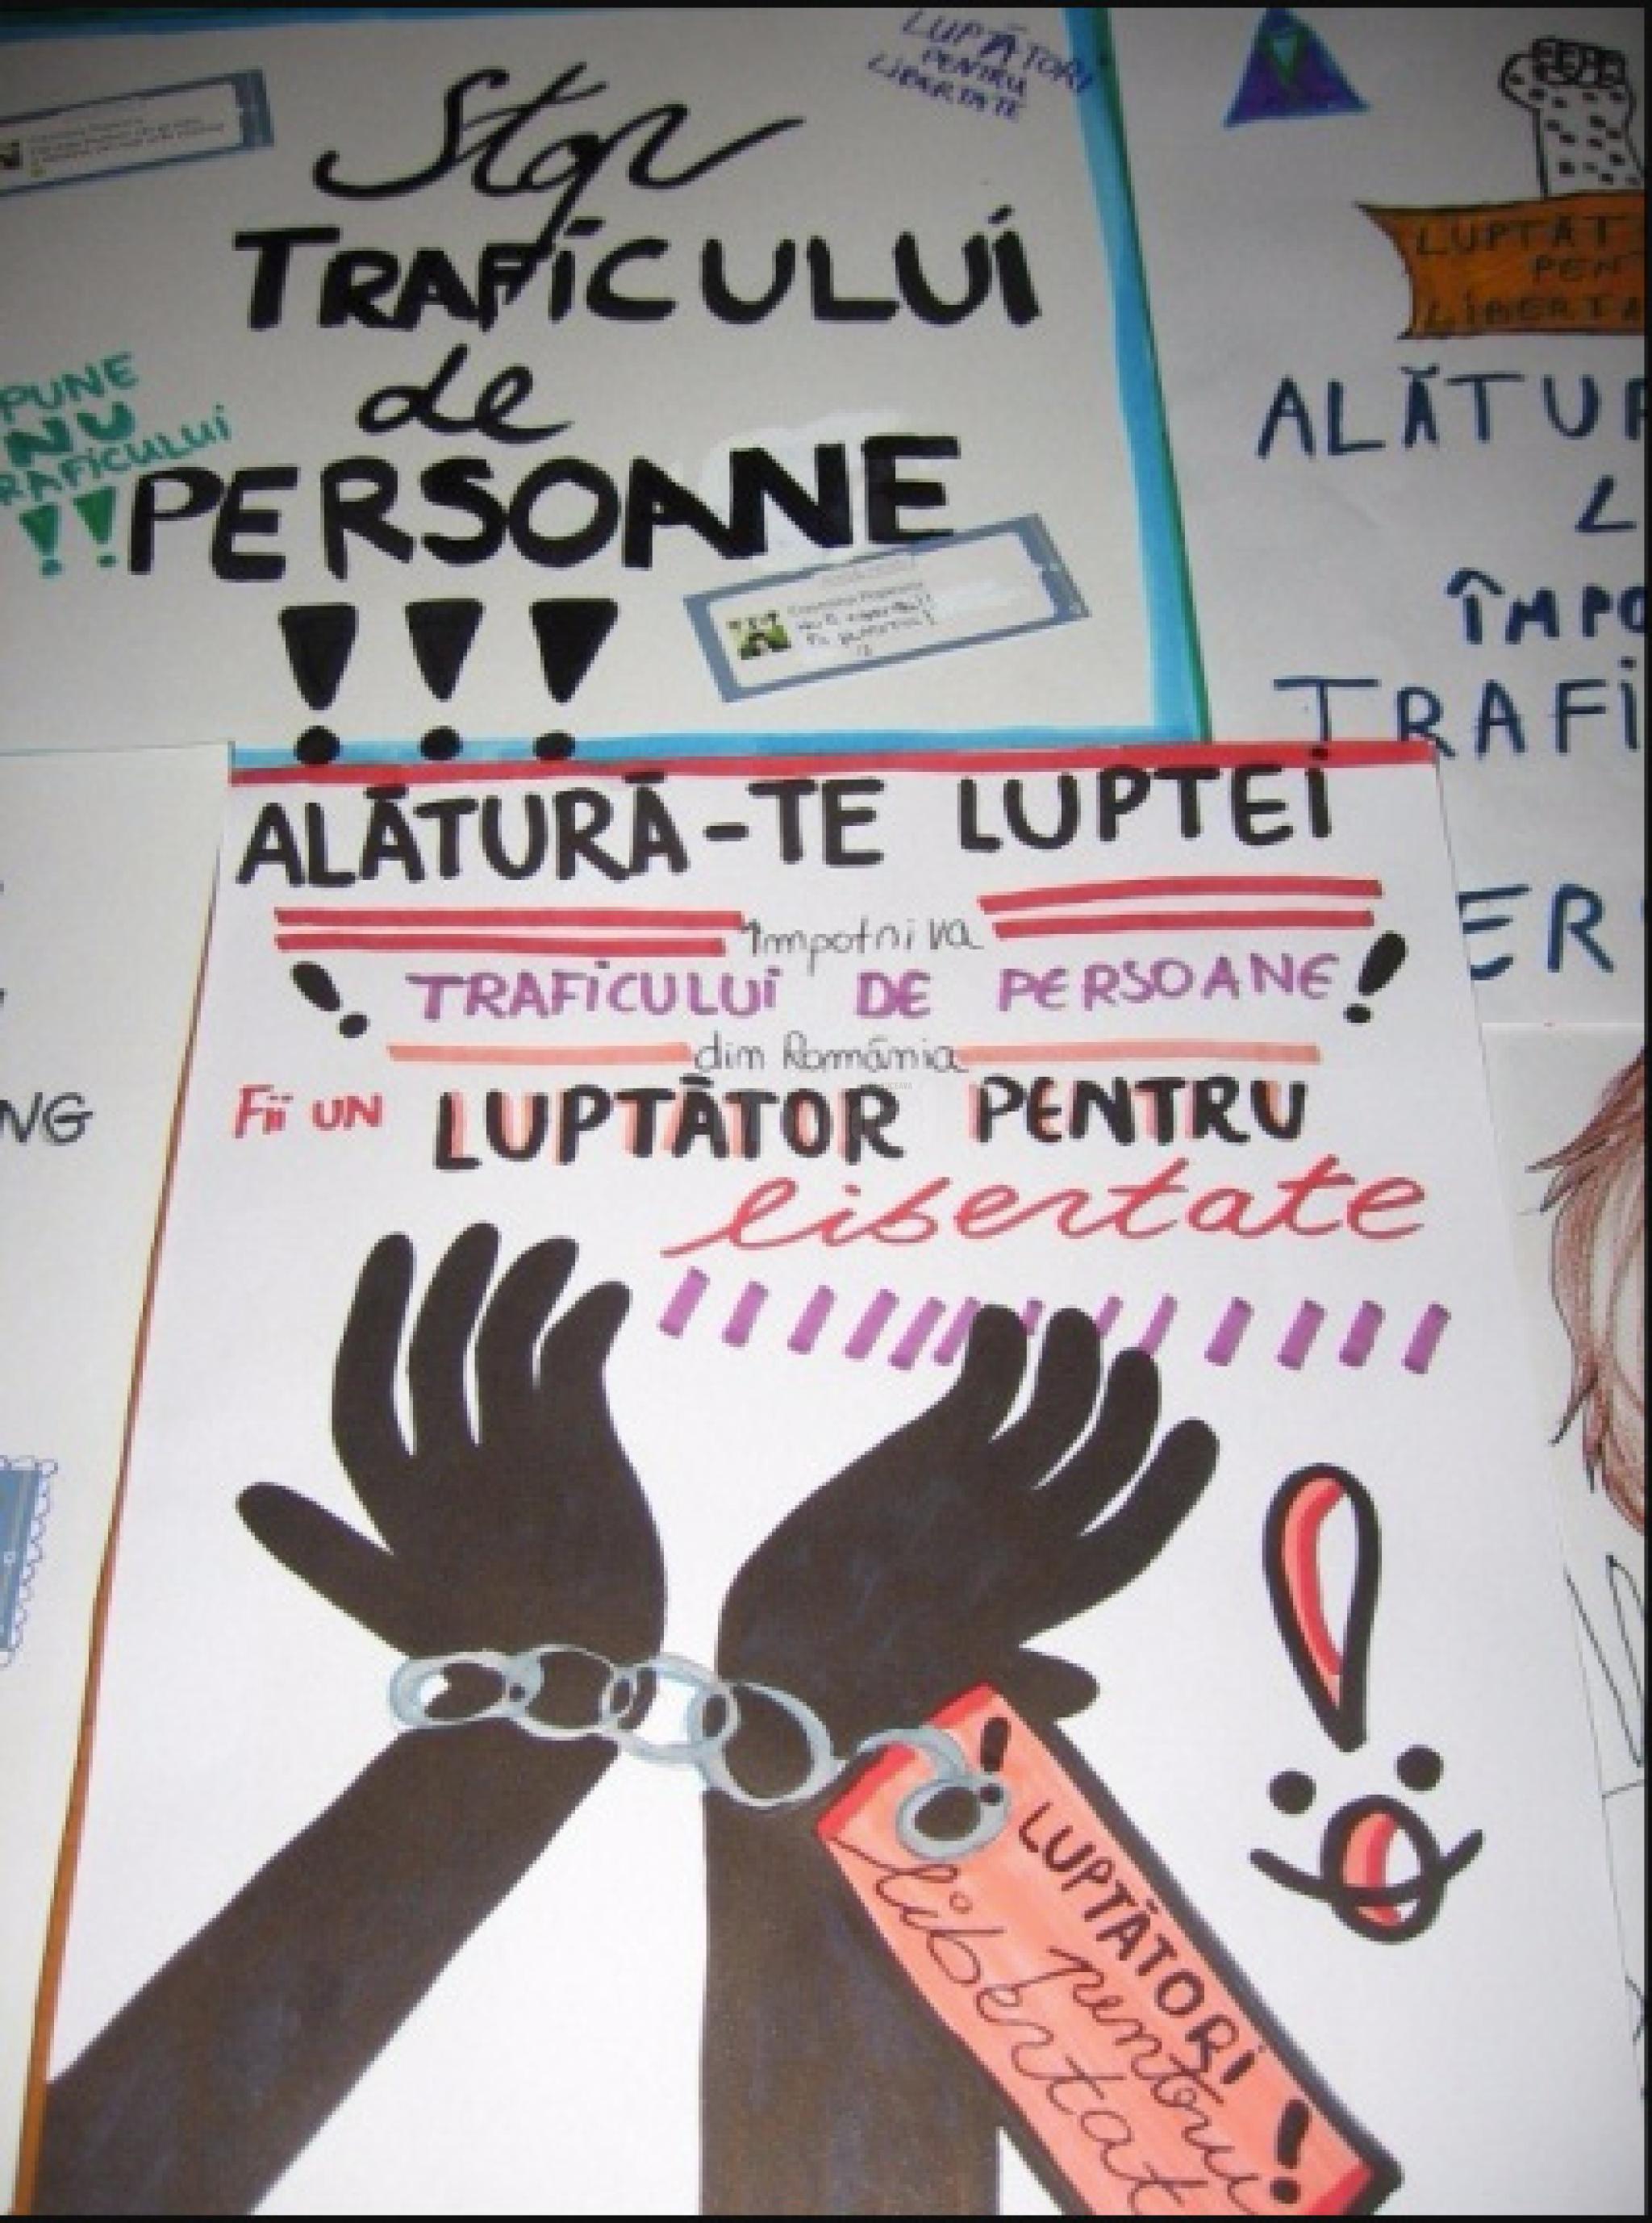 LUPTĂTORI
PENTRU
LIBERTATE
Stop
TRAFICULUI
de
PERSOANE
!!!
PUNE
NU
RAFICULUI
!!
LUPTĂT
PENT
LIBERTA
ALĂTUR
L
ÎMPO
TRAFI
ER
NG
ALĂTURĂ-TE LUPTEI
împotriva
! TRAFICULUI DE PERSOANE!
din România
Fii UN LUPTĂTOR PENTRU
libertate
! LUPTĂTORI
pentru
libertat
!